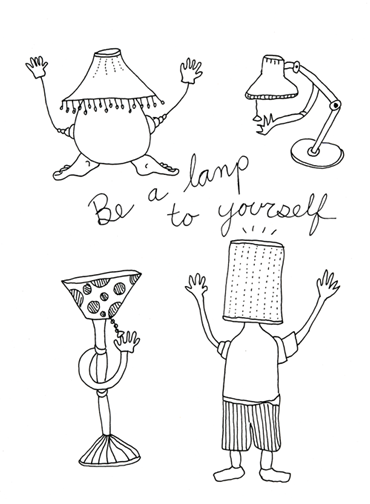 Be a lamp
to yourself